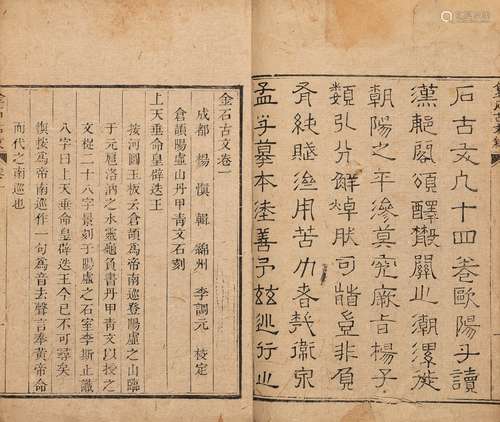 石古文凡十四卷歐陽子讀
漢郙閣頌醳散關之潮漯徙
朝陽之平滲莫究厥旨楊子
類引分觧焯肰可豈非負
純用苦力者哉衛宗
孟子摹本善予茲行之
金石古文卷一
成都 楊慎 輯 綿州 李調元 校定
倉頡陽虛山丹甲青文石刻
上天垂命皇辟迭王
按河圖玉版云倉頡爲帝南巡登陽虛之山臨
于元扈洛汭之水靈龜負書丹甲青文以授之
文二十八字景刻于陽虛之石室李斯止識
八字曰上天垂命皇辟迭王今已不可尋矣
慎按爲帝南巡作一句爲音去聲言奉黃帝命
而代之南巡也